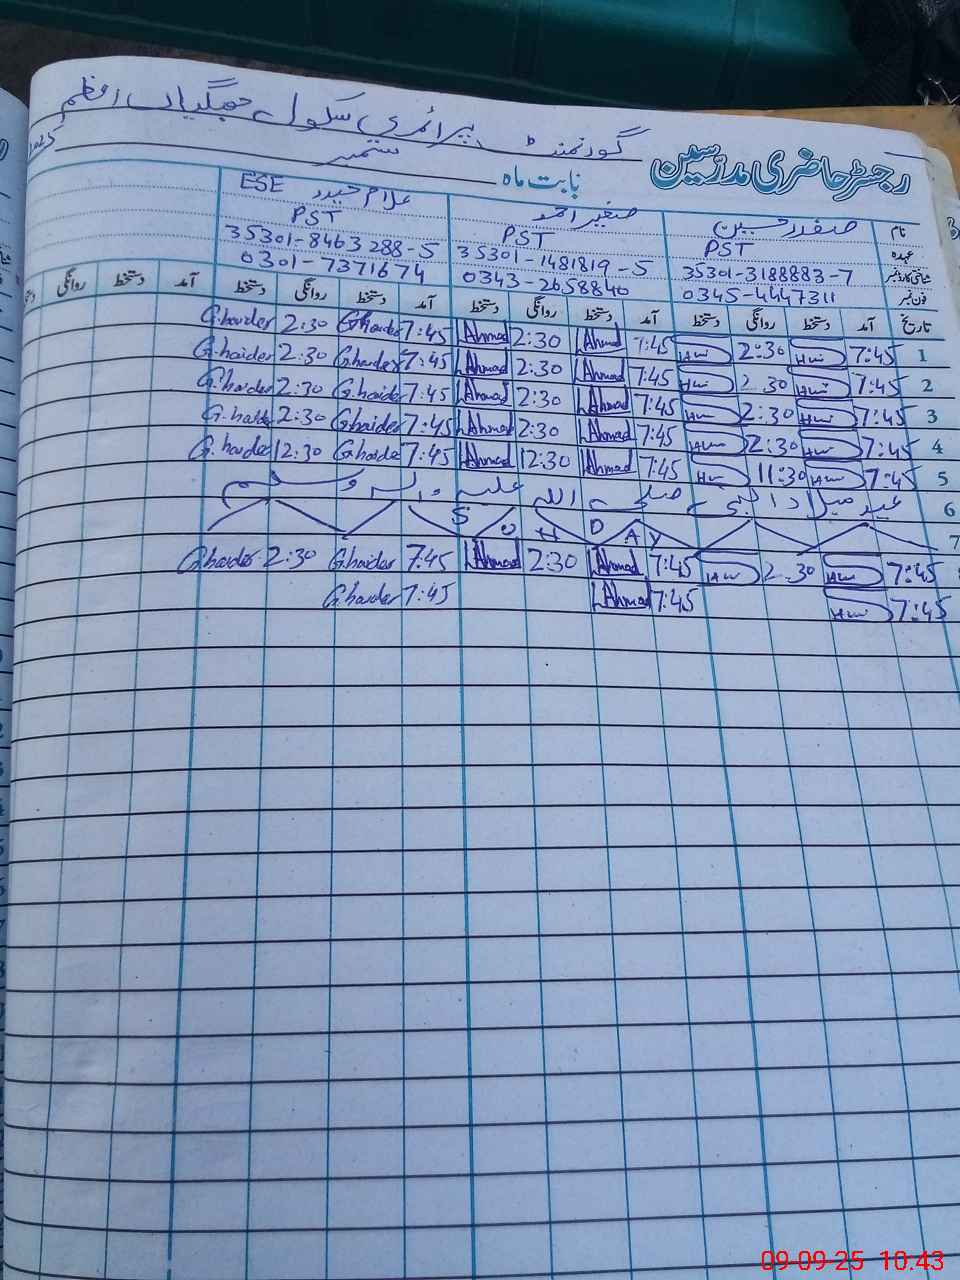 گورنمنٹ پرائمری سکول جھگیاں اعظم
رجسٹر حاضری مدرسین بابت ماہ ستمبر 2025
نام صفدر حسین صغیر احمد غلام حیدر ESE
عہدہ PST PST PST
شناختی کارڈ نمبر 35301-3188883-7 35301-1481819-5 35301-8463288-5
فون نمبر 0345-4447311 0343-2658840 0301-7371674
تاریخ آمد دستخط روانگی دستخط آمد دستخط روانگی دستخط آمد دستخط روانگی دستخط آمد دستخط روانگی
1 7:45 2:30 7:45 Ahmad 2:30 Ahmad 7:45 G.haider 2:30 G.haider
2 7:45 2:30 7:45 Ahmad 2:30 Ahmad 7:45 G.haider 2:30 G.haider
3 7:45 2:30 7:45 Ahmad 2:30 Ahmad 7:45 G.haider 2:30 G.haider
4 7:45 2:30 7:45 Ahmad 2:30 Ahmad 7:45 G.haider 2:30 G.haider
5 7:45 11:30 7:45 Ahmad 12:30 Ahmad 7:45 G.haider 12:30 G.haider
6 عید میلاد النبی صلی اللہ علیہ والہ وسلم
7 S U N D A Y
7:45 2:30 7:45 Ahmad 2:30 Ahmad 7:45 G.haider 2:30 G.haider
7:45 7:45 Ahmad 7:45 G.haider
09-09-25 10:43